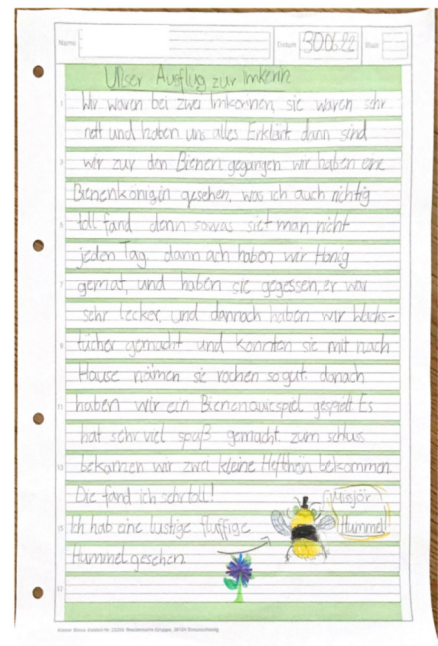 Name
Datum 30.06.22
Blatt
Unser Ausflug zur Imkerin
Wir waren bei zwei Imkerinen, sie waren sehr
nett und haben uns alles Erklärt dann sind
wir zur den Bienen gegangen wir haben eine
Bienenkönigin gesehen, was ich auch richtig
toll fand denn sowas siet man nicht
jeden Tag dann ach haben wir Honig
gemat, und haben sie gegessen, er war
sehr lecker, und dannach haben wir Wachs-
tücher gemacht und konnten sie mit nach
Hause nämen sie rochen so gut danach
haben wir ein Bienenquizspiel gespielt Es
hat sehr viel spaß gemacht zum schluss
bekamen wir zwei kleine Heftchen bekommen
Die fand ich sehr toll!
Misjör
Ich hab eine lustige fluffige
Hummel
Hummel gesehen.